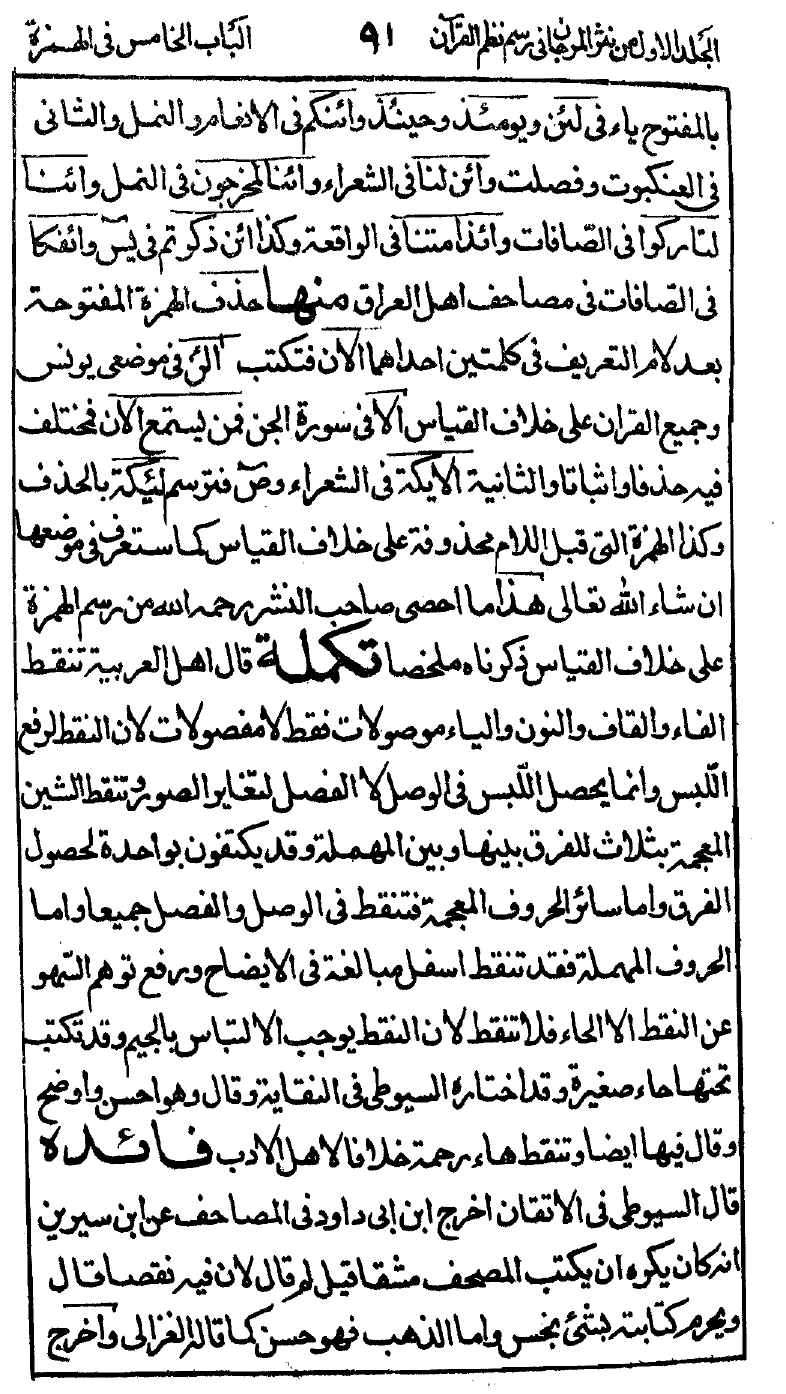 الجلد الاول من نثر المرجان فى رسم نظم القرآن ٩١ الباب الخامس فى الهمزة
بالمفتوح ياء فى لئن ويومئذ وحينئذ وائنكم فى الانعام والنمل والثانى
فى العنكبوت وفصلت وائن لنا فى الشعراء وائنا لمخرجون فى النمل وائنا
لتاركوا فى الصّافات وائذا متنا فى الواقعة وكذا ائن ذكرتم فى يٓس وائفكا
فى الصّافات فى مصاحف اهل العراق منها حذف الهمزة المفتوحة
بعد لام التعريف فى كلمتين احداهما الآن فتكتب الئن فى موضعى يونس
وجميع القران على خلاف القياس الا فى سورة الجن فمن يستمع الآن فمختلف
فيه حذفا واثباتا والثانية الأيكة فى الشعراء وصٓ فترسم لئيكة بالحذف
وكذا الهمزة التى قبل اللام محذوفة على خلاف القياس كما ستعرف فى موضعها
ان شاء الله تعالى هذا ما احصى صاحب النشر رحمه الله من رسم الهمزة
على خلاف القياس ذكرناه ملخصا تكملة قال اهل العربية تنقط
الفاء والقاف والنون والياء موصولات فقط لا مفصولات لان النقط لرفع
اللّبس وانما يحصل اللّبس فى الوصل لا الفصل لتغاير الصور وتنقط الشين
المعجمة بثلاث للفرق بينها وبين المهملة وقد يكتفون بواحدة لحصول
الفرق واما سائر الحروف المعجمة فتنقط فى الوصل والفصل جميعا واما
الحروف المهملة فقد تنقط اسفل مبالغة فى الايضاح ورفع توهم السّهو
عن النقط الا الحاء فلا تنقط لان النقط يوجب الالتباس بالجيم وقد تكتب
تحتها حاء صغيرة وقد اختاره السيوطى فى النقاية وقال وهو احسن واوضح
وقال فيها ايضا وتنقط هاء رحمة خلافا لاهل الادب فائدة
قال السيوطى فى الاتقان اخرج ابن ابى داود فى المصاحف عن ابن سيرين
انه كان يكره ان يكتب المصحف مشقا قيل لم قال لان فيه نقصا قال
ويحرم كتابته بشئ نجس واما الذهب فهو حسن كما قاله الغزالى واخرج